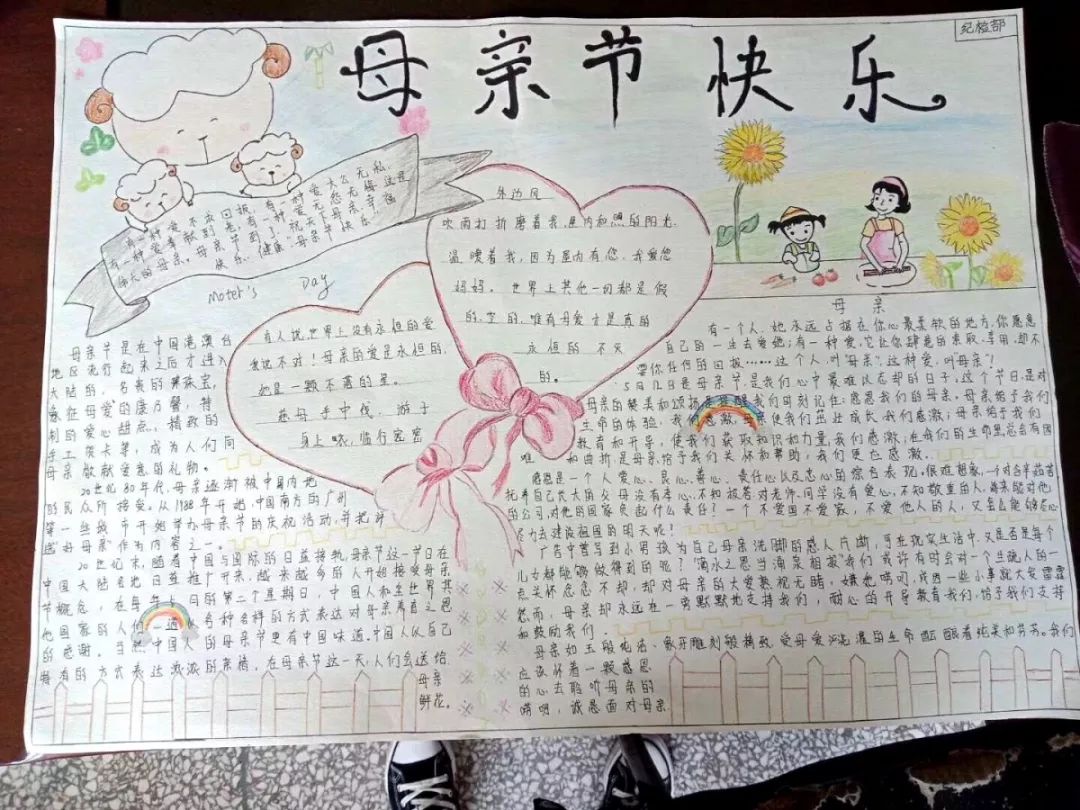 纪检部
母亲节快乐
有一种爱不求回报,有一种爱大公无私,
有一种爱奉献到老,有一种爱无怨无悔,这是
伟大的母亲。母亲节到了,祝天下母亲幸福
快乐,健康"母亲节快乐"
Moter's Day
外边风
吹雨打折磨着我,屋内和熙的阳光
温暖着我,因为屋内有您,我爱您
妈妈。世界上其他一切都是假
的,空的,唯有母爱才是真的
永恒的 不灭
的。
有人说,世界上没有永恒的爱
我说不对!母亲的爱是永恒的,
她是一颗不落的星。
慈母手中线,游子
身上衣,临行密密
母亲节是在中国港澳台
地区流行起来之后才进入
大陆的,名贵的
象征母爱的康乃馨,特
制的爱心甜点,精致的
手工贺卡等,成为人们向
母亲敬献爱意的礼物。
20世纪80年代,母亲逐渐被中国内地
的民众所接受。从1988年开始,中国南方的广州
等一些城市开始举办母亲节的庆祝活动,并把评
选"好母亲"作为内容之一。
20世纪末,随着中国与国际的日益接轨,母亲节这一节日在
中国大陆各地日益推广开来,越来越多的人开始接受母亲
节概念,在每年5月的第二个星期日,中国人和全世界其
他国家的人们一道以各种各样的方式表达对母亲养育之恩
的感谢。当然中国人的母亲节更有中国味道。中国人以自己
特有的方式表达浓浓的亲情,在母亲节这一天,人们会送给
母亲
鲜花。
母亲
有一个人,她永远占据在你心最柔软的地方,你愿意
自己的一生去爱她;有一种爱,它让你肆意的索取、享用,却不
要你任何的回报……这个人,叫"母亲",这种爱,叫母亲"!
5月12日是母亲节,是我们心中最难以忘却的日子,这个节日,是对
母亲的赞美和颂扬,是提醒我们时刻记住:感恩我们的母亲。母亲给予我们
生命的体验,我们感激;母亲使我们茁壮成长我们感激;母亲给予我们
教育和开导,使我们获取知识和力量,我们感激;在我们的生命里总会有困
难和曲折是母亲给予我们关怀和帮助,我们更应感激。
感恩是一个人爱心、良心、善心、责任心以及忠心的综合表现,很难想象,一个对含辛茹苦
扶养自己长大的父母没有孝心,不知报答,对老师、同学没有爱心,不知敬重的人,将来能对他
的公司,对他的国家负起什么责任?一个不爱国不爱家,不爱他人的人,又怎么能够尽心
尽力去建设祖国的明天呢!
广告中曾写到小男孩为自己母亲洗脚的感人片断,可在现实生活中,又是否是每个
儿女都能够做得到的呢?"滴水之恩当涌泉相报"我们或许有时会对一个生疏人的一
点关怀念念不忘,却对母亲的大爱熟视无睹,嫌她唠叨,或因一些小事就大发雷霆
然而,母亲却永远在一旁默默地支持我们,耐心的开导教育我们,给予我们支持
和鼓励我们
母亲如玉般纯洁、象牙雕刻般精致,受母爱浇灌的生命酝酿着纯美和芬芳。我们
应该怀着一颗感恩
的心去聆听母亲的
唠叨,诚恳面对母亲